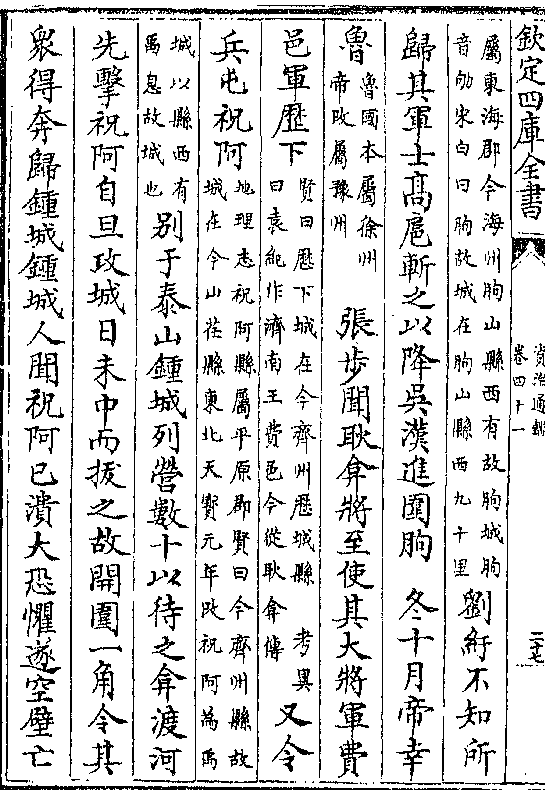 欽定四庫全書
資治通鑑
卷四十一
二十七
屬東海郡今海州朐山縣西有故朐城朐
音劬宋白曰朐故城在朐山縣西九十里
劉紆不知所
歸其軍士高扈斬之以降吳漢進圍朐　冬十月帝幸
魯
魯國本屬徐州
帝改屬豫州
張步聞耿弇將至使其大將軍費
邑軍歷下
賢曰歷下城在今齊州歷城縣　考異
曰袁紀作濟南王費邑今從耿弇傳
又令
兵屯祝阿
地理志祝阿縣屬平原郡賢曰今齊州縣故
城在今山茌縣東北天寶元年改祝阿為禹
城以縣西有
禹息故城也
别于泰山鍾城列營數十以待之弇渡河
先擊祝阿自旦攻城日未中而拔之故開圍一角令其
衆得奔歸鍾城鍾城人聞祝阿已潰大恐懼遂空壁亡